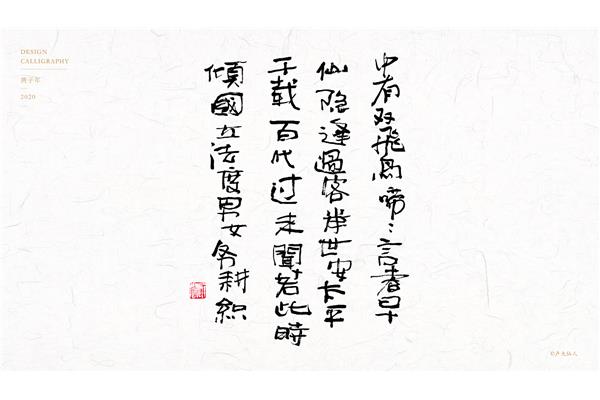 DESIGN
CALLIGRAPHY
庚子年
2020
中有双飛鳥嘮〻言春早
仙隐逢過客舉世安太平
千载百代过未聞若此時
傾國立法度男女务耕織